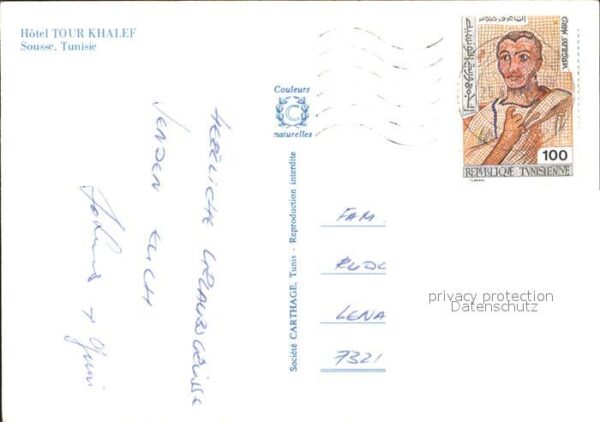 Hôtel TOUR KHALEF
Sousse, Tunisie
HERZLICHE URLAUBSGRÜSSE
SENDEN EUCH
Couleurs
C
naturelles
Société CARTHAGE, Tunis - Reproduction interdite
VIRGILIUS MARO
100
REPUBLIQUE TUNISIENNE
FAM.
RUDI
LENA
7321
privacy protection
Datenschutz